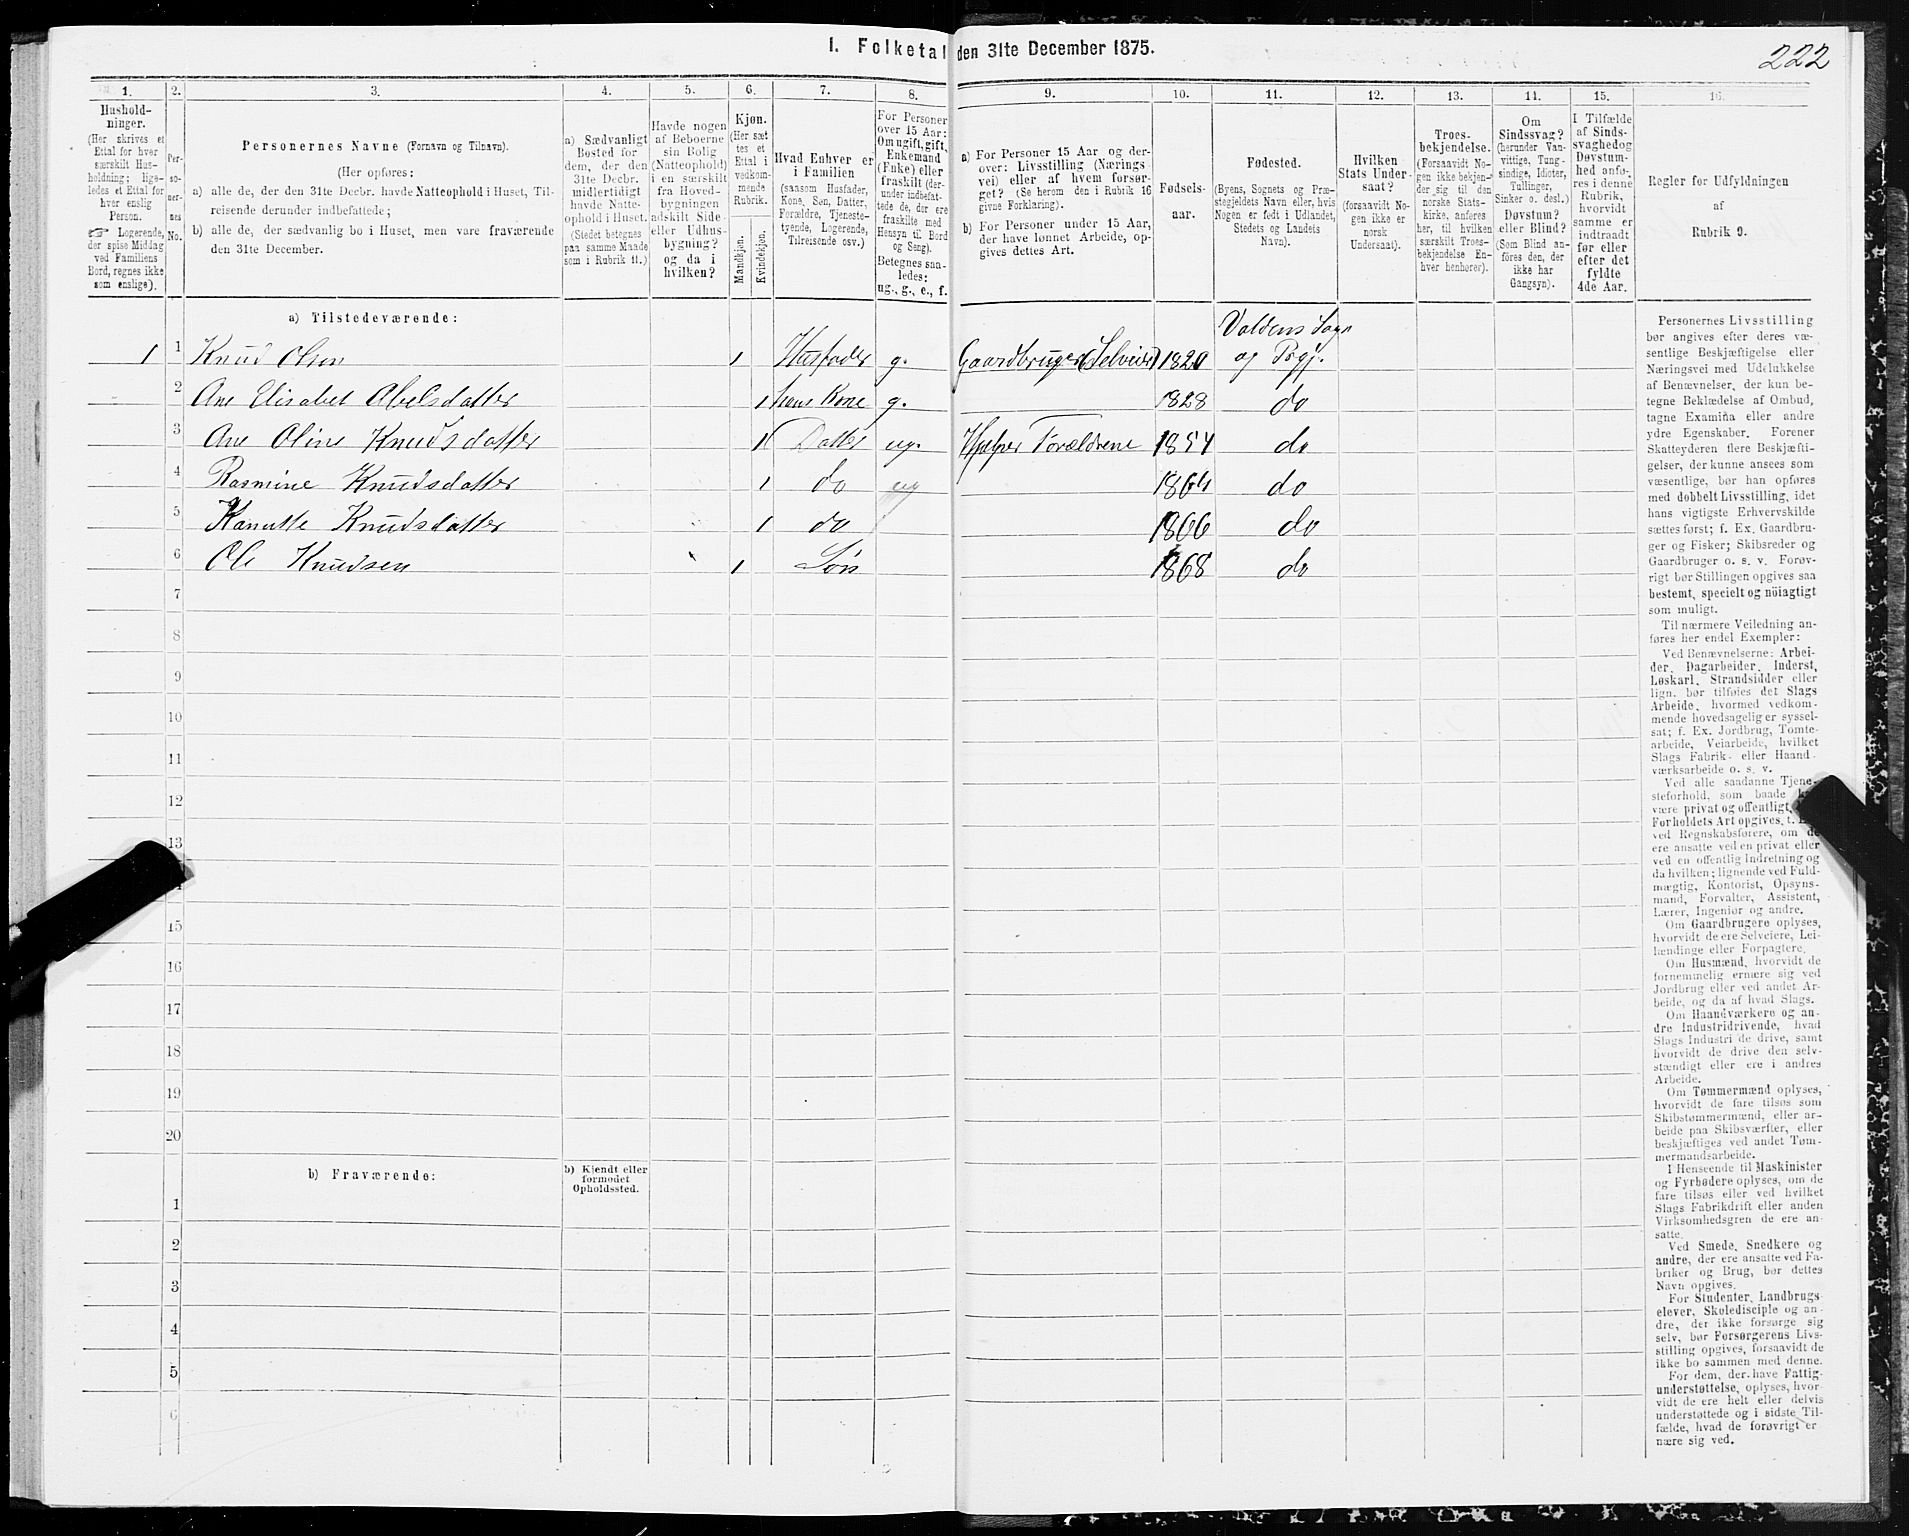 I. Folketal den 31te December 1875.
222
1.
2.
3.
4.
5.
6.
7.
8.
9.
10.
11.
12.
13.
14.
15.
16.
Hushold-
ninger.
(Her skrives et
Ettal for hver
særskilt Hus-
holdning; lige-
ledes et Ettal for
hver enslig
Person.
☞ Logerende,
der spise Middag
ved Familiens
Bord, regnes ikke
som enslige).
Per-
so-
ner-
nes
No.
Personernes Navne (Fornavn og Tilnavn).
(Her opføres:
a) alle de, der den 31te Decbr. havde Natteophold i Huset, Til-
reisende derunder indbefattede;
b) alle de, der sædvanlig bo i Huset, men vare fraværende
den 31te December.
a) Sædvanligt
Bosted for
dem, der den
31te Decbr.
midlertidigt
havde Natte-
ophold i Huset.
(Stedet betegnes
paa samme Maade
som i Rubrik 11.)
Havde nogen
af Beboerne
sin Bolig
(Natteophold)
i en særskilt
fra Hoved-
bygningen
adskilt Side-
eller Udhus-
bygning?
og da i
hvilken?
Kjøn.
(Her sæt-
tes et
Ettal i
vedkom-
mende
Rubrik.
Mandkjøn.
Kvindekjøn.
Hvad Enhver er
i Familien
(saasom Husfader,
Kone, Søn, Datter,
Forældre, Tjeneste-
tyende, Logerende,
Tilreisende osv.)
For Personer
over 15 Aar:
Om ugift, gift,
Enkemand
(Enke) eller
fraskilt (der-
under indbefat-
tede de, der ere
fraskilte med
Hensyn til Bord
og Seng).
Betegnes saa-
ledes:
ug., g., e., f.
a) For Personer 15 Aar og der-
over: Livsstilling (Nærings-
vei) eller af hvem forsør-
get? (Se herom den i Rubrik 16
givne Forklaring).
b) For Personer under 15 Aar,
der have lønnet Arbeide, op-
gives dettes Art.
Fødsels-
aar.
Fødested.
(Byens, Sognets og Præ-
stegjeldets Navn eller, hvis
Nogen er født i Udlandet,
Stedets og Landets
Navn).
Hvilken
Stats Under-
saat?
(forsaavidt No-
gen ikke er
norsk
Undersaat).
Troes-
bekjendelse.
(Forsaavidt No-
gen ikke bekjen-
der sig til den
norske Stats-
kirke, anføres
her, til hvilken
særskilt Troes-
bekjendelse En-
hver henhører).
Om
Sindssvag?
(herunder Van-
vittige, Tung-
sindige, Idioter,
Tullinger,
Sinker o. desl.)
Døvstum?
eller Blind?
(Som Blind an-
føres den, der
ikke har
Gangsyn).
I Tilfælde
af Sinds-
svaghed og
Døvstum-
hed anfø-
res i denne
Rubrik,
hvorvidt
samme er
indtraadt
før eller
efter det
fyldte
4de Aar.
Regler for Udfyldningen
af
Rubrik 9.
a) Tilstedeværende:
1 1 Knud Olsen 1 Husfader g. Gaardbruger (Selveier) 1820 Voldens Sogn og Prgj.
2 Ane Elisabet Abelsdatter 1 hans Kone g. 1828 do
3 Ane Oline Knudsdatter 1 Datter ug. Hjelper Forældrene 1854 do
4 Rasmine Knudsdatter 1 do ug 1864 do
5 Kanutte Knudsdatter 1 do 1866 do
6 Ole Knudsen 1 Søn 1868 do
7
8
9
10
11
12
13
15
16
17
18
19
20
b) Fraværende:
b) Kjendt eller
formodet
Opholdssted.
1
2
3
4
5
6
Personernes Livsstilling
bør angives efter deres væ-
sentlige Beskjæftigelse eller
Næringsvei med Udelukkelse
af Benævnelser, der kun be-
tegne Beklædelse af Ombud,
tagne Examina eller andre
ydre Egenskaber. Forener
Skatteyderen flere Beskjæfti-
gelser, der kunne ansees som
væsentlige, bør han opføres
med dobbelt Livsstilling, idet
hans vigtigste Erhvervskilde
sættes først; f. Ex. Gaardbru-
ger og Fisker; Skibsreder og
Gaardbruger o. s. v. Forøv-
rigt bør Stillingen opgives saa
bestemt, specielt og nöiagtigt
som muligt.
Til nærmere Veiledning an-
føres her endel Exempler:
Ved Benævnelserne: Arbei-
der, Dagarbeider, Inderst,
Løskarl, Strandsidder eller
lign. bør tilføies det Slags
Arbeide, hvormed vedkom-
mende hovedsagelig er syssel-
sat; f. Ex. Jordbrug, Tomte-
arbeide, Veiarbeide, hvilket
Slags Fabrik- eller Haand-
værksarbeide o. s. v.
Ved alle saadanne Tjene-
steforhold, som baade
være privat og offentligt,
Forholdets Art opgives, t.
ved Regnskabsførere, om de
ere ansatte ved en privat eller
ved en offentlig Indretning og
da hvilken; lignende ved Fuld-
mægtig, Kontorist, Opsyns-
mand, Forvalter, Assistent,
Lærer, Ingeniør og andre.
Om Gaardbrugere oplyses,
hvorvidt de ere Selveiere, Lei-
lændinge eller Forpagtere.
Om Husmænd, hvorvidt de
fornemmelig ernære sig ved
Jordbrug eller ved andet Ar-
beide, og da af hvad Slags.
Om Haandværkere og an-
dre Industridrivende, hvad
Slags Industri de drive, samt
hvorvidt de drive den selv-
stændigt eller ere i andres
Arbeide.
Om Tømmermænd oplyses,
hvorvidt de fare tilsøs som
Skibstømmermænd, eller ar-
beide paa Skibsværfter, eller
beskjæftiges ved andet Tøm-
mermandsarbeide.
I Henseende til Maskinister
og Fyrbødere oplyses, om de
fare tilsøs eller ved hvilket
Slags Fabrikdrift eller anden
Virksomhedsgren de ere an-
satte.
Ved Smede, Snedkere og
andre, der ere ansatte ved Fa-
briker og Brug, bør dettes
Navn opgives.
For Studenter, Landbrugs-
elever, Skoledisciple og an-
dre, der ikke forsørge sig
selv, bør Forsørgerens Livs-
stilling opgives, forsaavidt de
ikke bo sammen med denne.
For dem, der have Fattig-
understøttelse, oplyses, hvor-
vidt de ere helt eller delvis
understøttede og i sidste Til-
fælde, hvad de forøvrigt er-
nære sig ved.